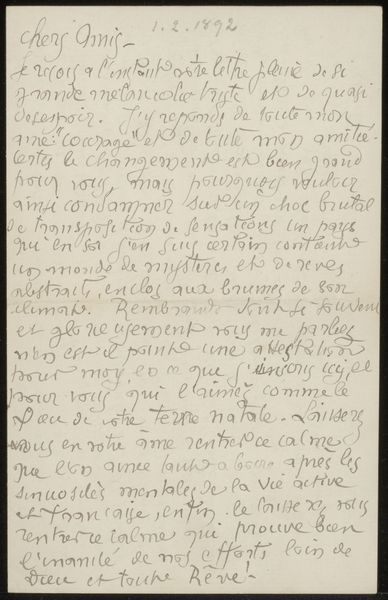 1.2.1892
Chers Amis -
Je reçois à l'instant votre lettre pleine de si
grande mélancolie triste et de quasi
désespoir. J'y réponds de toute mon
âme "courage" et de toute mon amitié -
certes le changement est bien grand
pour vous, mais pourquoi vouloir
ainsi condamner sur un choc brutal
de transposition de sensations un pays
qui en soi j'en suis certain contient
un monde de mystères et de rêves
abstraits, enclos aux brumes de son
climat. Rembrandt dont si souvent
et glorieusement vous me parliez
n'en est il point une attestation
pour moi, en ce que j'
pour vous qui l'aimez comme le
Dieu de votre terre natale. Laissez
vous en votre âme rentrer ce calme
que l'on aime tant à boire après les
sinuosités mentales de la vie active
et française, enfin le laisser, vous
rentrer ce calme qui prouve bien
l'inanité de nos efforts loin de
Dieu et toute Rêve!